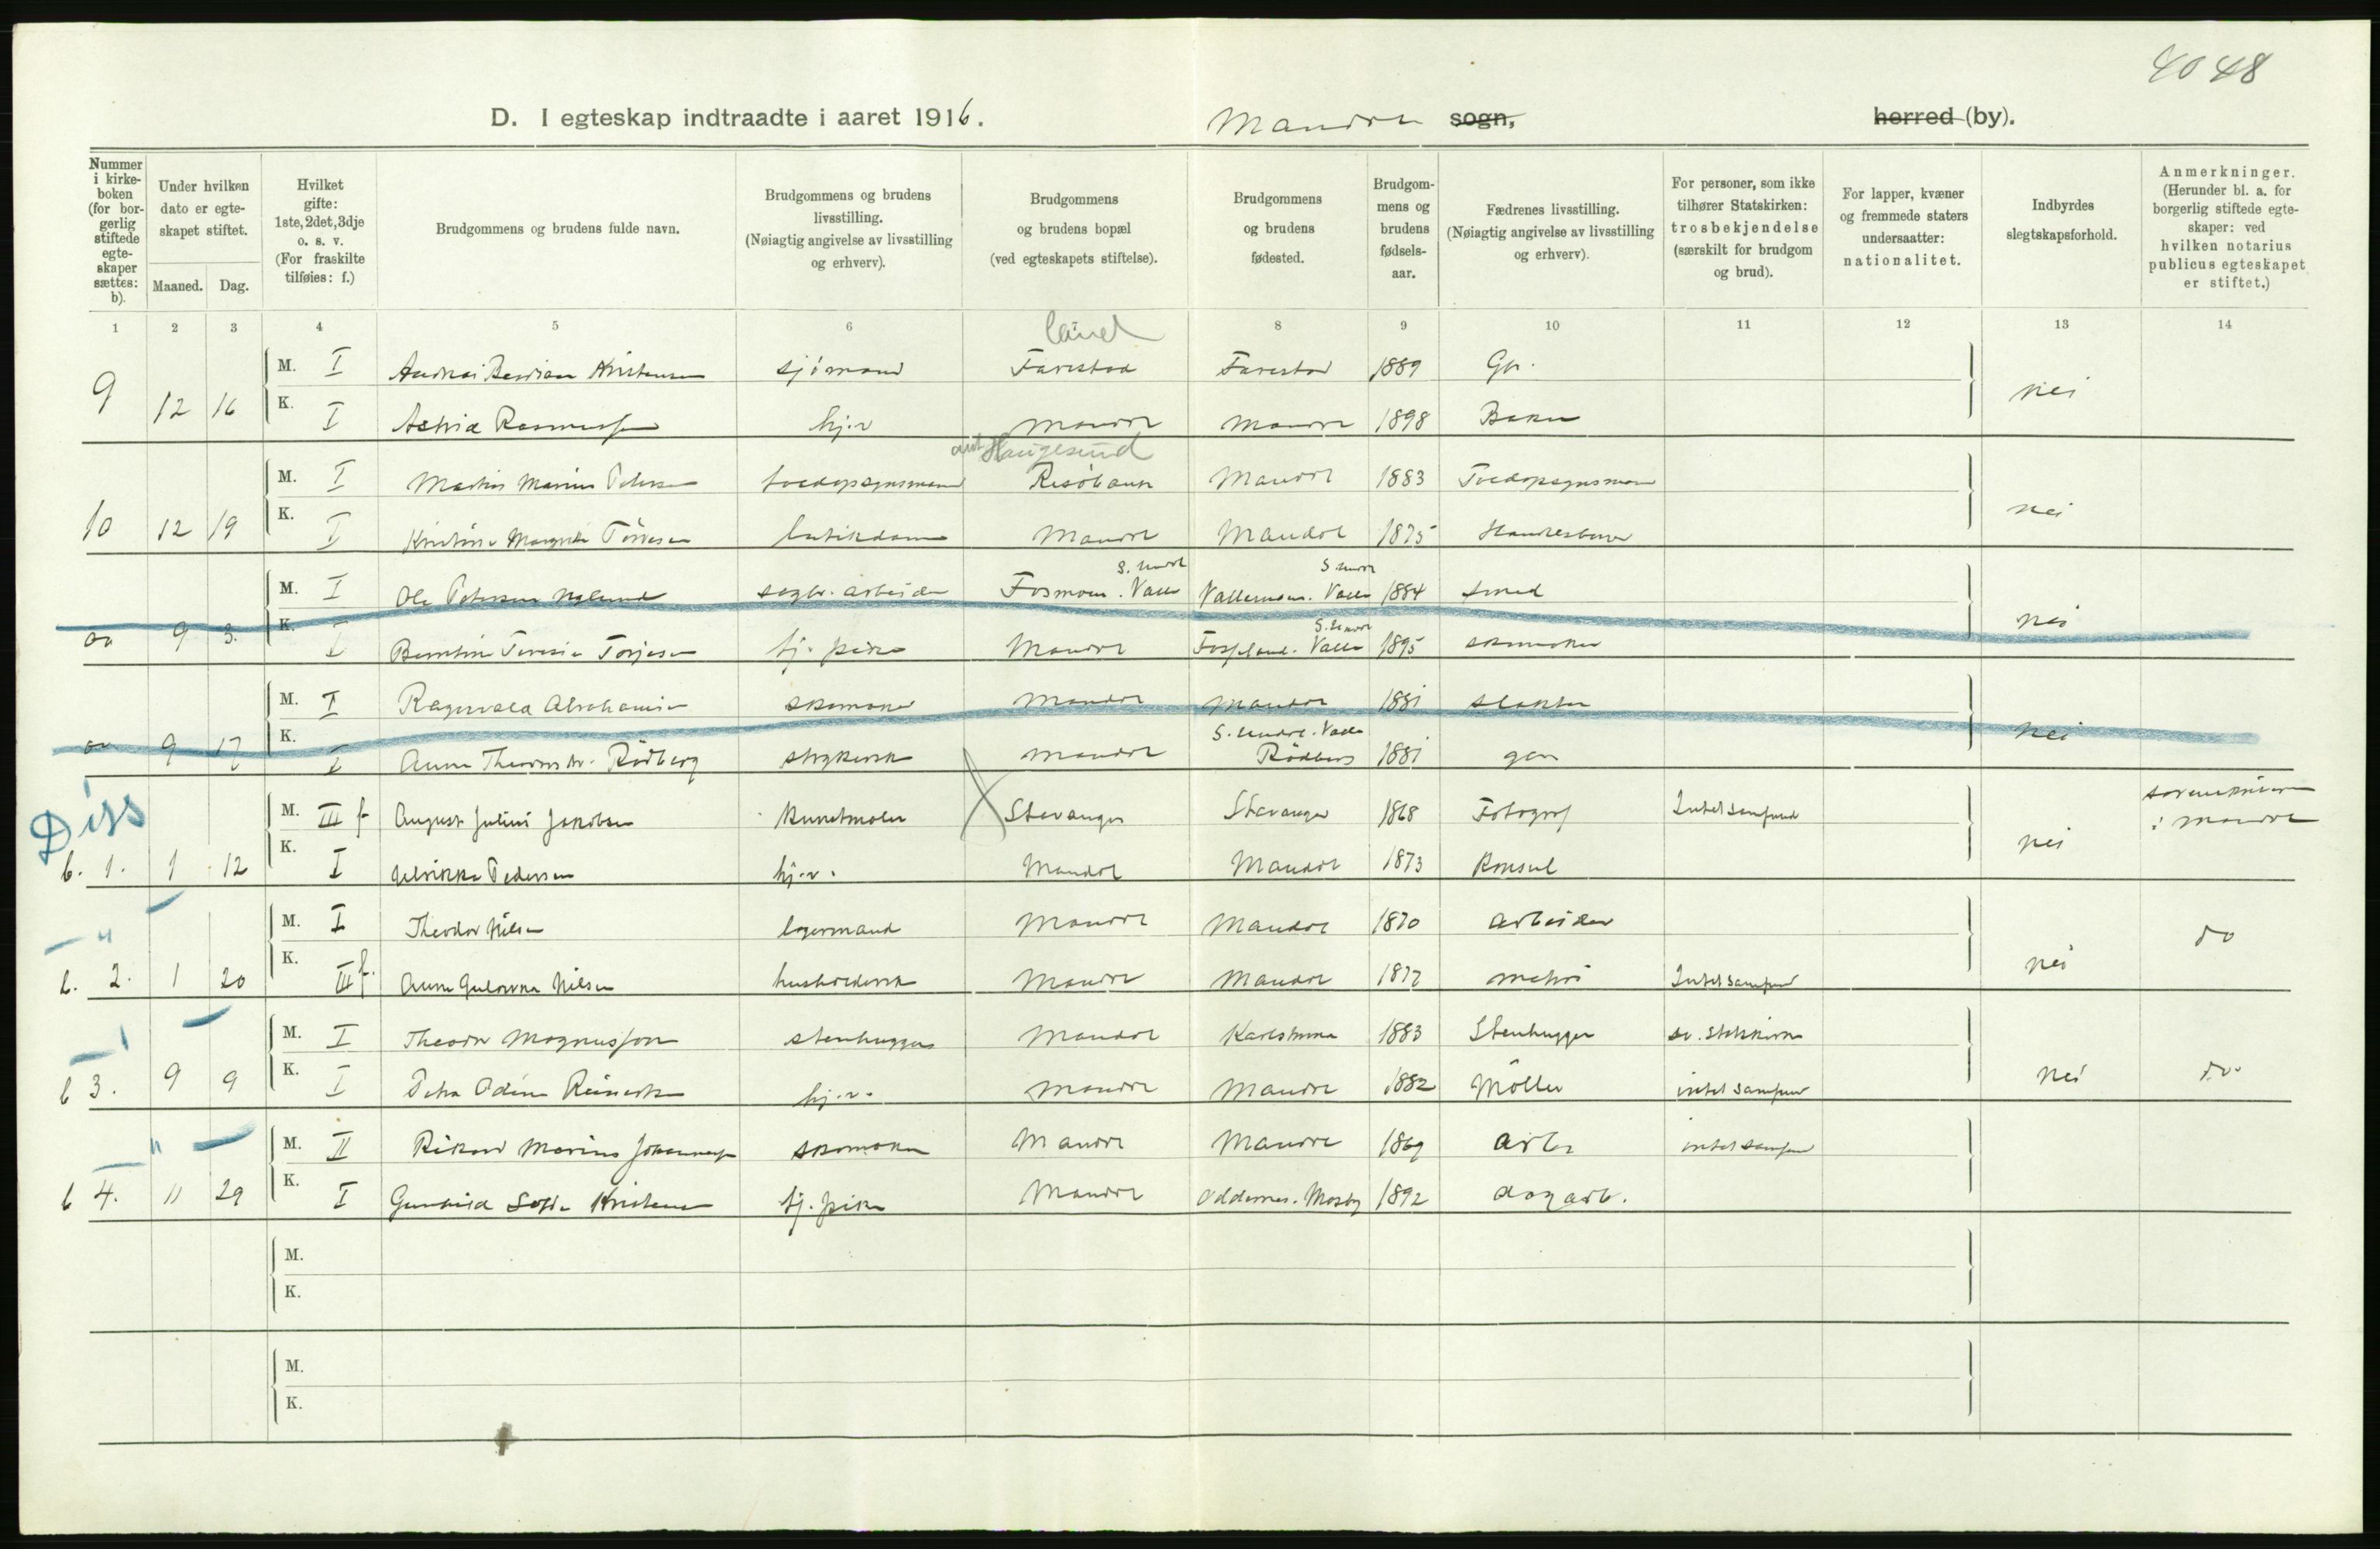 4048
D. I egteskap indtraadte i aaret 1916. Mandal sogn, herred (by).
Nummer i kirkeboken (for borgerlig stiftede egteskaper sættes: b).
Under hvilken dato er egteskapet stiftet.
Maaned. Dag.
Hvilket gifte: 1ste, 2det, 3dje o. s. v. (For fraskilte tilføies: f.)
Brudgommens og brudens fulde navn.
Brudgommens og brudens livsstilling. (Nøiagtig angivelse av livsstilling og erhverv).
Brudgommens og brudens bopæl (ved egteskapets stiftelse).
Brudgommens og brudens fødested.
Brudgommens og brudens fødselsaar.
Fædrenes livsstilling. (Nøiagtig angivelse av livsstilling og erhverv).
For personer, som ikke tilhører Statskirken: trosbekjendelse (særskilt for brudgom og brud).
For lapper, kvæner og fremmede staters undersaatter: nationalitet.
Indbyrdes slegtskapsforhold.
Anmerkninger. (Herunder bl. a. for borgerlig stiftede egteskaper: ved hvilken notarius publicus egteskapet er stiftet.)
1 2 3 4 5 6 8 9 10 11 12 13 14
land
M. I Kristensen sjømand Farestad Farestad 1889 Gbr.
9 12 16 K. I Astrid Rasmussen hj.v Mandal Mandal 1898 Baker nei
Haugesund
M. I Martin Marius Petersen Risøbank Mandal 1883
10 12 19 K. I Kristine Margrethe butikdame Mandal Mandal 1875 nei
S. Undal S. Undal
M. I Ole Petersen sagbr. arbeider Fosmoen. Valle Vallemoen. Valle 1884 smed
S. Undal
9 3. K. I Torjesen tj. pike Mandal Valle 1895 skomaker nei
M. I Ragnvald Abrahamsen skomaker Mandal Mandal 1881 slakter
S. Undal. Valle
9 17 K. I Anna Rødberg strykerske Mandal Rødberg 1881 gbr nei
Diss
M. III f August Julius Jakobsen Kunstmaler Stavanger Stavanger 1868 Fotograf Intet samfund sorenskriveren i Mandal
b. 1. 1 12 K. I Ulrikke Pedersen hj.v. Mandal Mandal 1873 Konsul nei
"
M. I Theodor Nilsen lagermand Mandal Mandal 1870 arbeider do
b. 2. 1 20 K. III f. Anna Nilsen husholderske Mandal Mandal 1877 matros Intet samfund nei
M. I Theodor Magnusson stenhugger Mandal Karlshamn 1883 Stenhugger sv. statskirke
b 3. 9 9 K. I Petra Odine hj.v. Mandal Mandal 1882 Møller intet samfund nei do
"
M. II Rikard Marius Johannessen skomaker Mandal Mandal 1869 arb. intet samfund
b 4. 11 29 K. I Gunhild Sofie Kristensen tj. pike Mandal Oddernes. Mosby 1892 dagarb.
M.
K.
M.
K.